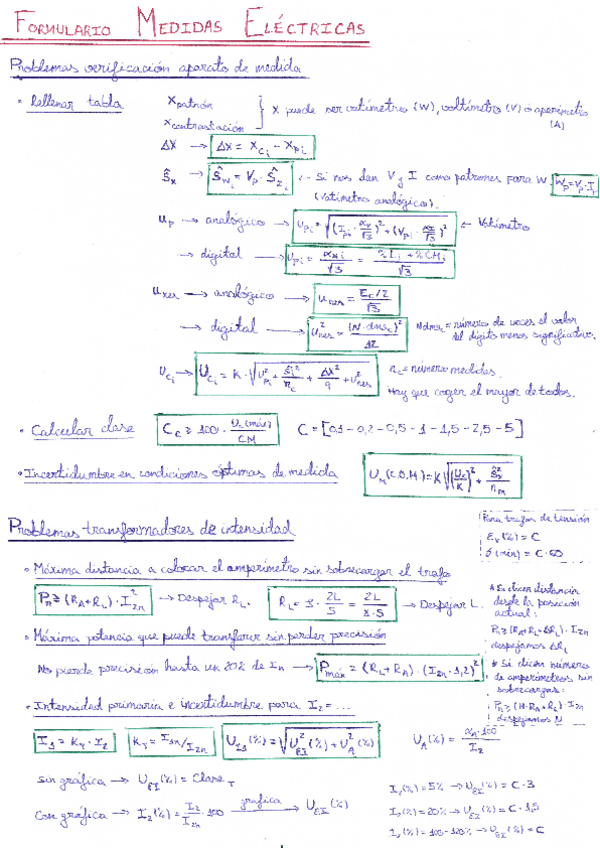 FORMULARIO MEDIDAS ELÉCTRICAS
Problemas verificación aparato de medida
• Rellenar tabla
X patrón
X contrastación
} X puede ser vatímetro (W), voltímetro (V) o amperímetro (A)
ΔX → ΔX = X_Ci - X_Pi
Ŝx → Ŝ_Wi = V_P · Ŝ_Ii ← Si nos dan V y I como patrones para W (vatímetro analógico). W_P = V_P · I_P
U_P → analógico → U_Pi = √((I_Pi · α_v/√3)² + (V_Pi · α_I/√3)²) ← Vatímetro
→ digital → U_Pi = α_Mi/√3 = (%L_i + %CM_i)/√3
U_res → analógico → U_res = (E_c/2)/√3
→ digital → U²_res = (N · dms_c)²/12 N dms_c = número de veces el valor del dígito menos significativo.
U_Ci → U_Ci = K · √(U²_Pi + Ŝi²/n_c + ΔX²/9 + U²_res) n_c = número medidas.
Hay que coger el mayor de todos.
• Calcular clase C_c ≥ 100 · U_c(máx)/CM C = [0,1 - 0,2 - 0,5 - 1 - 1,5 - 2,5 - 5]
• Incertidumbre en condiciones óptimas de medida U_M (C.O.M.) = K √((U_c/K)² + Ŝ²/n_m)
Problemas transformadores de intensidad
Para trafos de tensión
ε_v (%) = C
δ (min) = C · 60
• Máxima distancia a colocar el amperímetro sin sobrecargar el trafo
P_n ≥ (R_A + R_L) · I²_2n → Despejar R_L. R_L = ρ · 2L/S = 2L/(γ·S) → Despejar L.
* Si dicen distancia desde la posición actual:
P_n ≥ (R_A + R_L + ΔR_L) · I_2n
despejamos ΔR_L
• Máxima potencia que puede transferir sin perder precisión
No pierde precisión hasta un 20% de I_n → P_máx = (R_L + R_A) · (I_2n · 1,2)²
* Si dicen número de amperímetros sin sobrecargar:
P_n ≥ (N · R_A + R_L) · I_2n
despejamos N
• Intensidad primaria e incertidumbre para I_2 = ...
I_1 = K_I · I_2 K_I = I_1n/I_2n U_I1 (%) = √(U²_EI (%) + U²_A (%)) U_A (%) = α_n · 100/I_2
sin gráfica → U_EI (%) = Clase_T
Con gráfica → I_2 (%) = I_2/I_2n · 100 gráfica → U_EI (%)
I_1 (%) = 5% → U_EI (%) = C · 3
I_1 (%) = 20% → U_EI (%) = C · 1,5
I_1 (%) = 100 - 120% → U_EI (%) = C